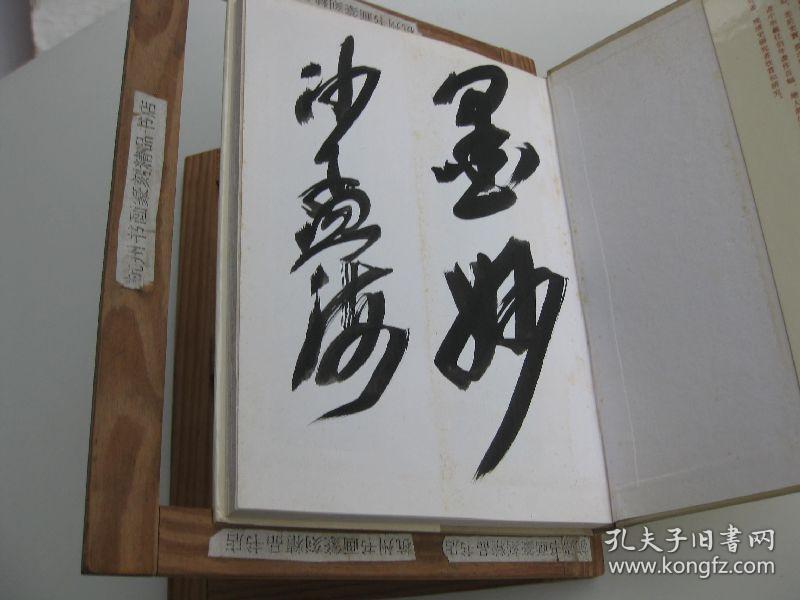 墨妙
沙孟海
杭州书画篆刻精品书店
杭州书画篆刻精品书店
杭州书画篆刻精品书店
书画篆刻精品书店
孔夫子旧书网
www.kongfz.com